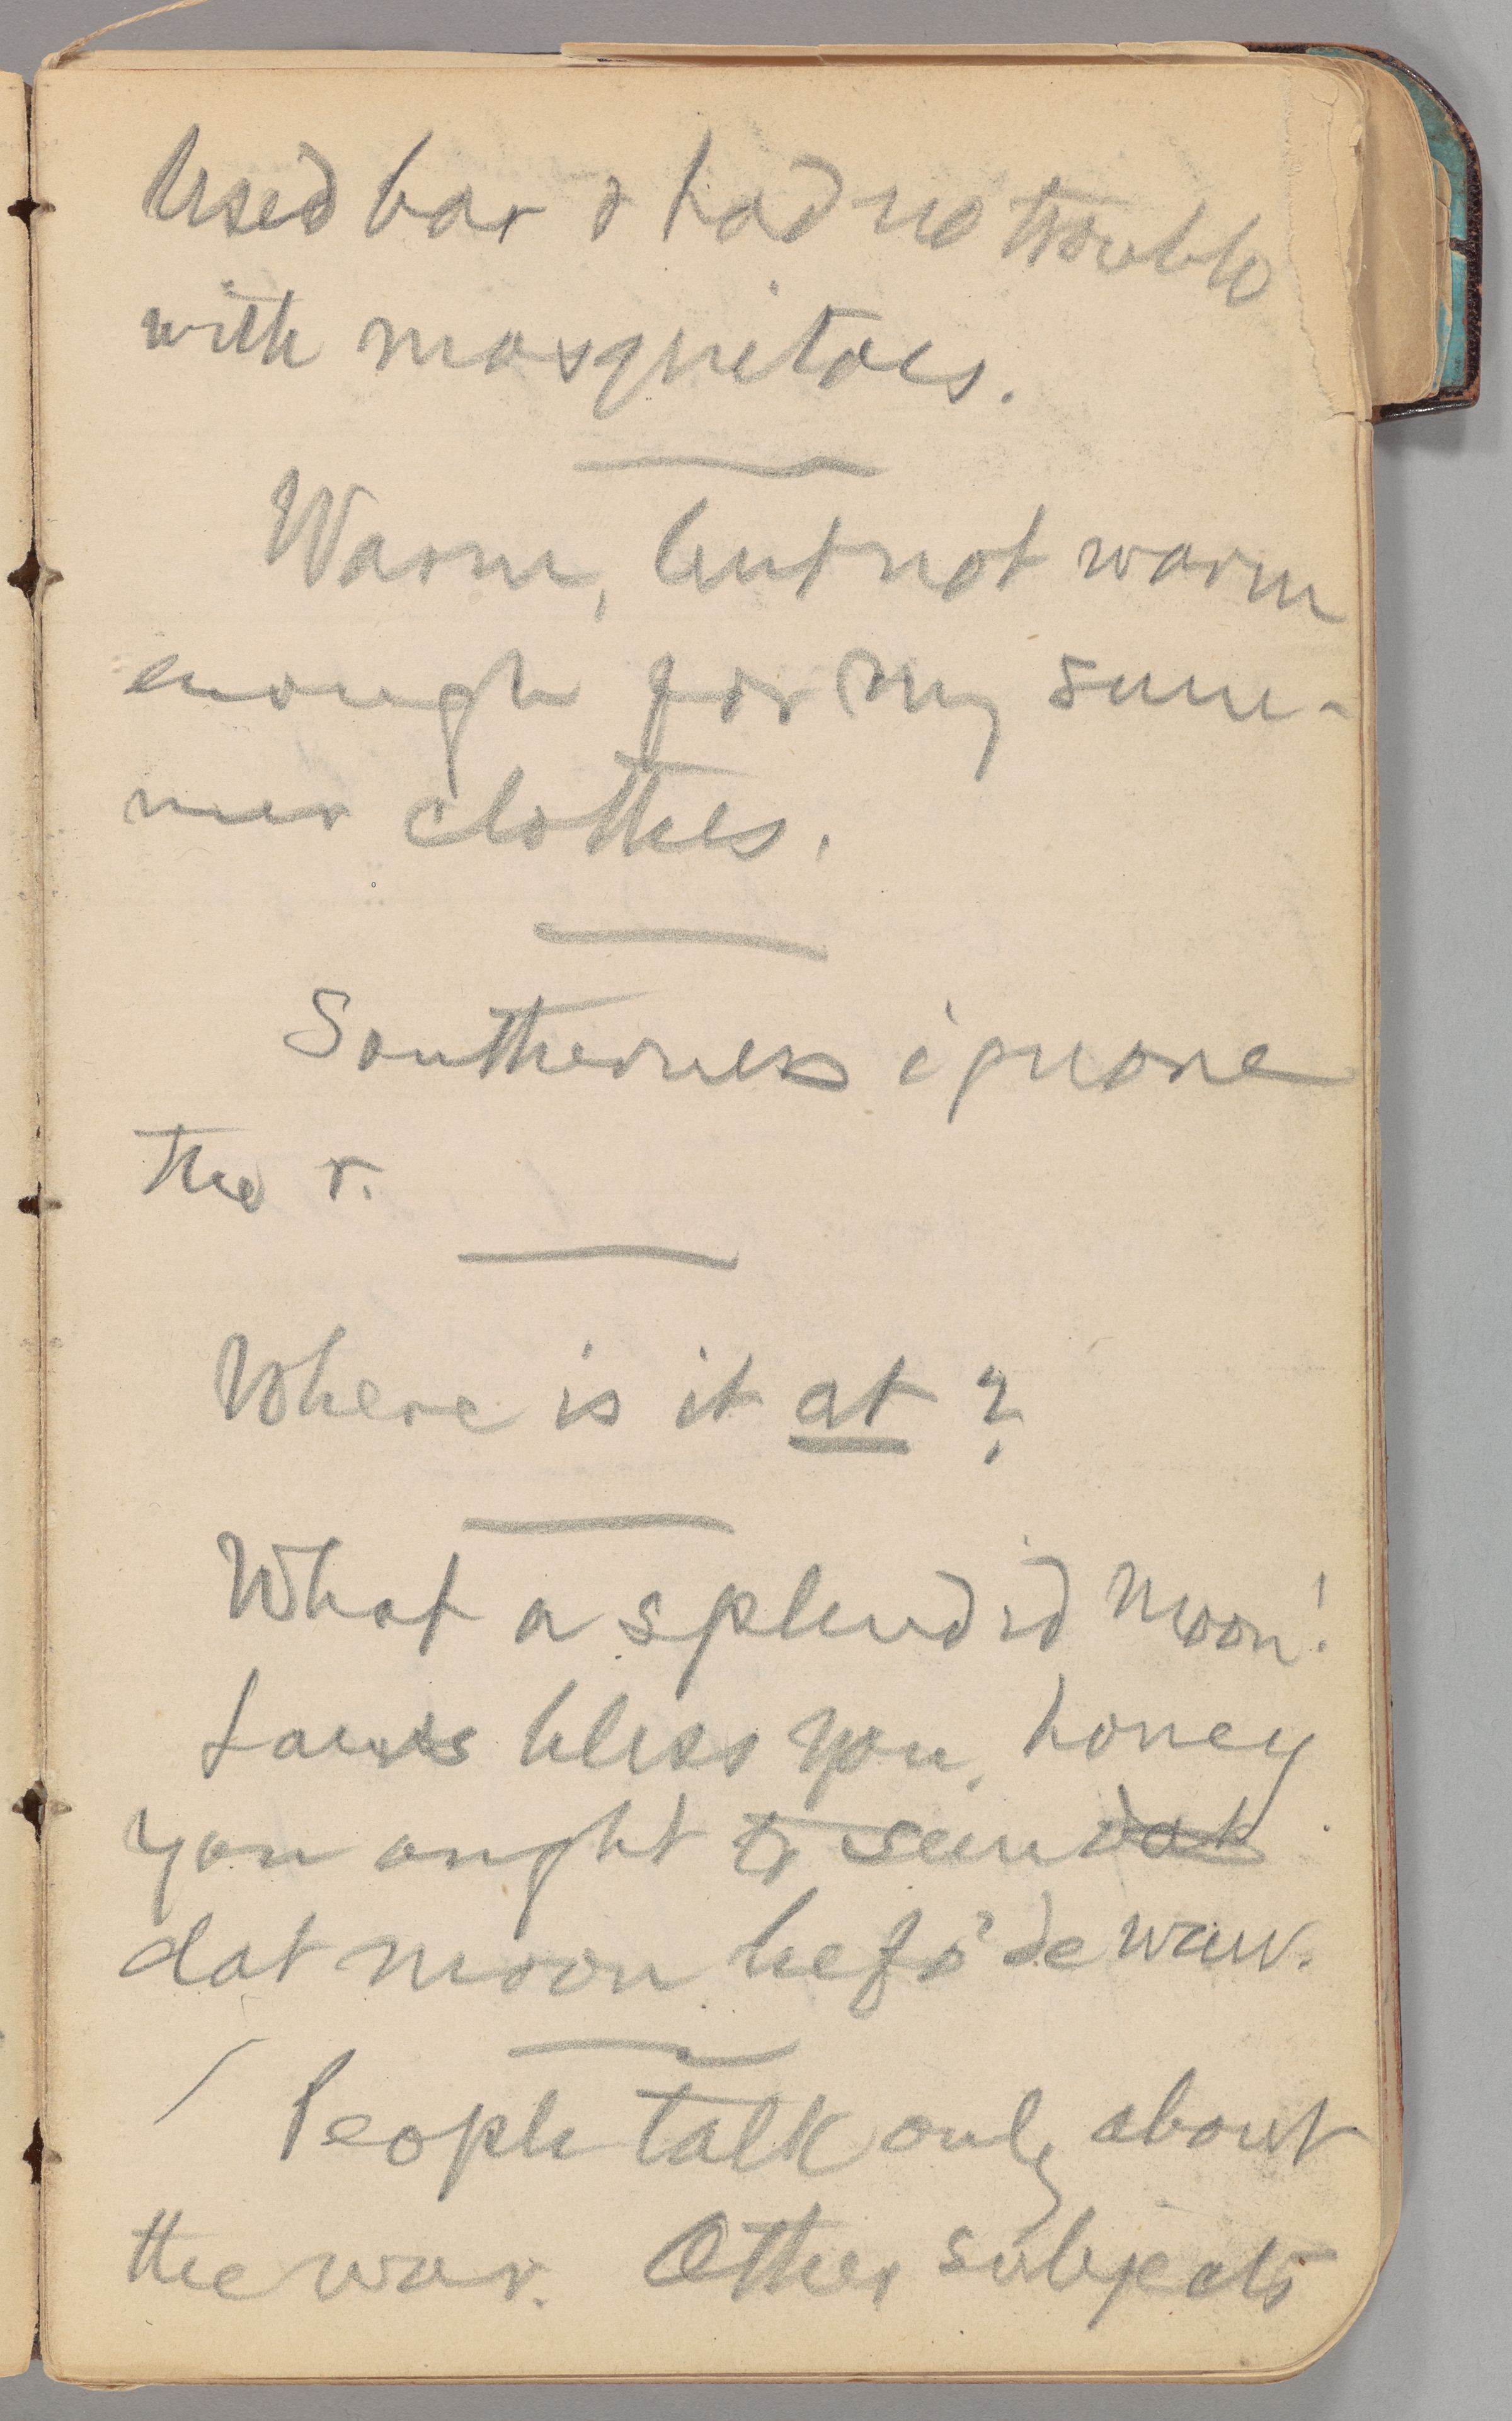 Used bar & had no trouble
with mosquitoes.
Warm, but not warm
enough for my sum-
mer clothes.
Southerners ignore
the r.
Where is it at?
What a splendid moon!
Laws bless you, honey
you ought to seen dat
dat moon befo' de waw.
People talk only about
the war. Other subjects